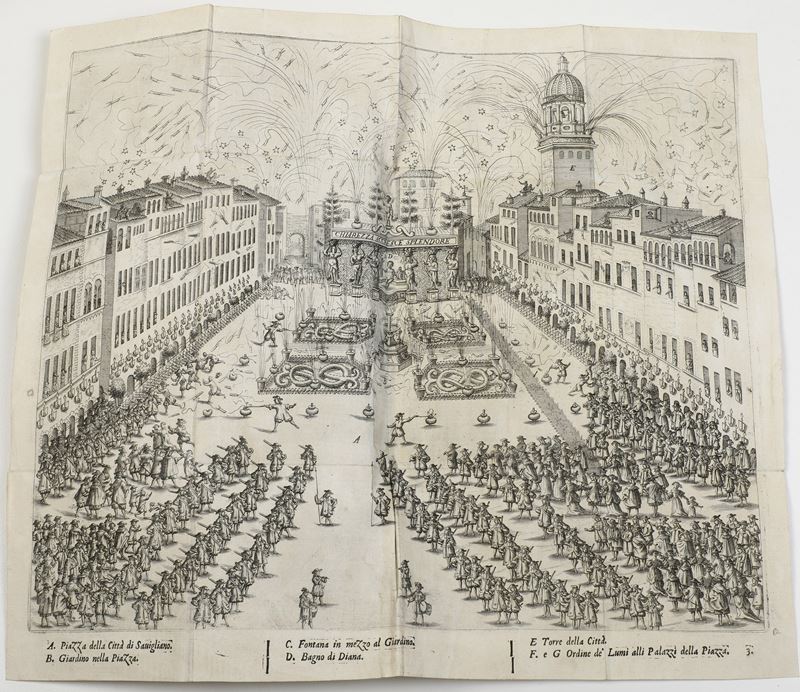 E
CHIAREZZA E SPLENDORE
D
A
A. Piazza della Città di Sauigliano.
B. Giardino nella Piazza.
C. Fontana in mezzo al Giardino.
D. Bagno di Diana.
E Torre della Città.
F. e G Ordine de' Lumi alli Palazzi della Piazza.
3.